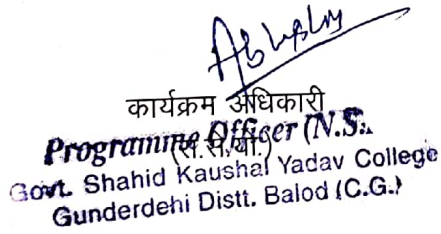 कार्यक्रम अधिकारी
Programme Officer (N.S.
(रा.से.यो.)
Govt. Shahid Kaushal Yadav College
Gunderdehi Distt. Balod (C.G.)